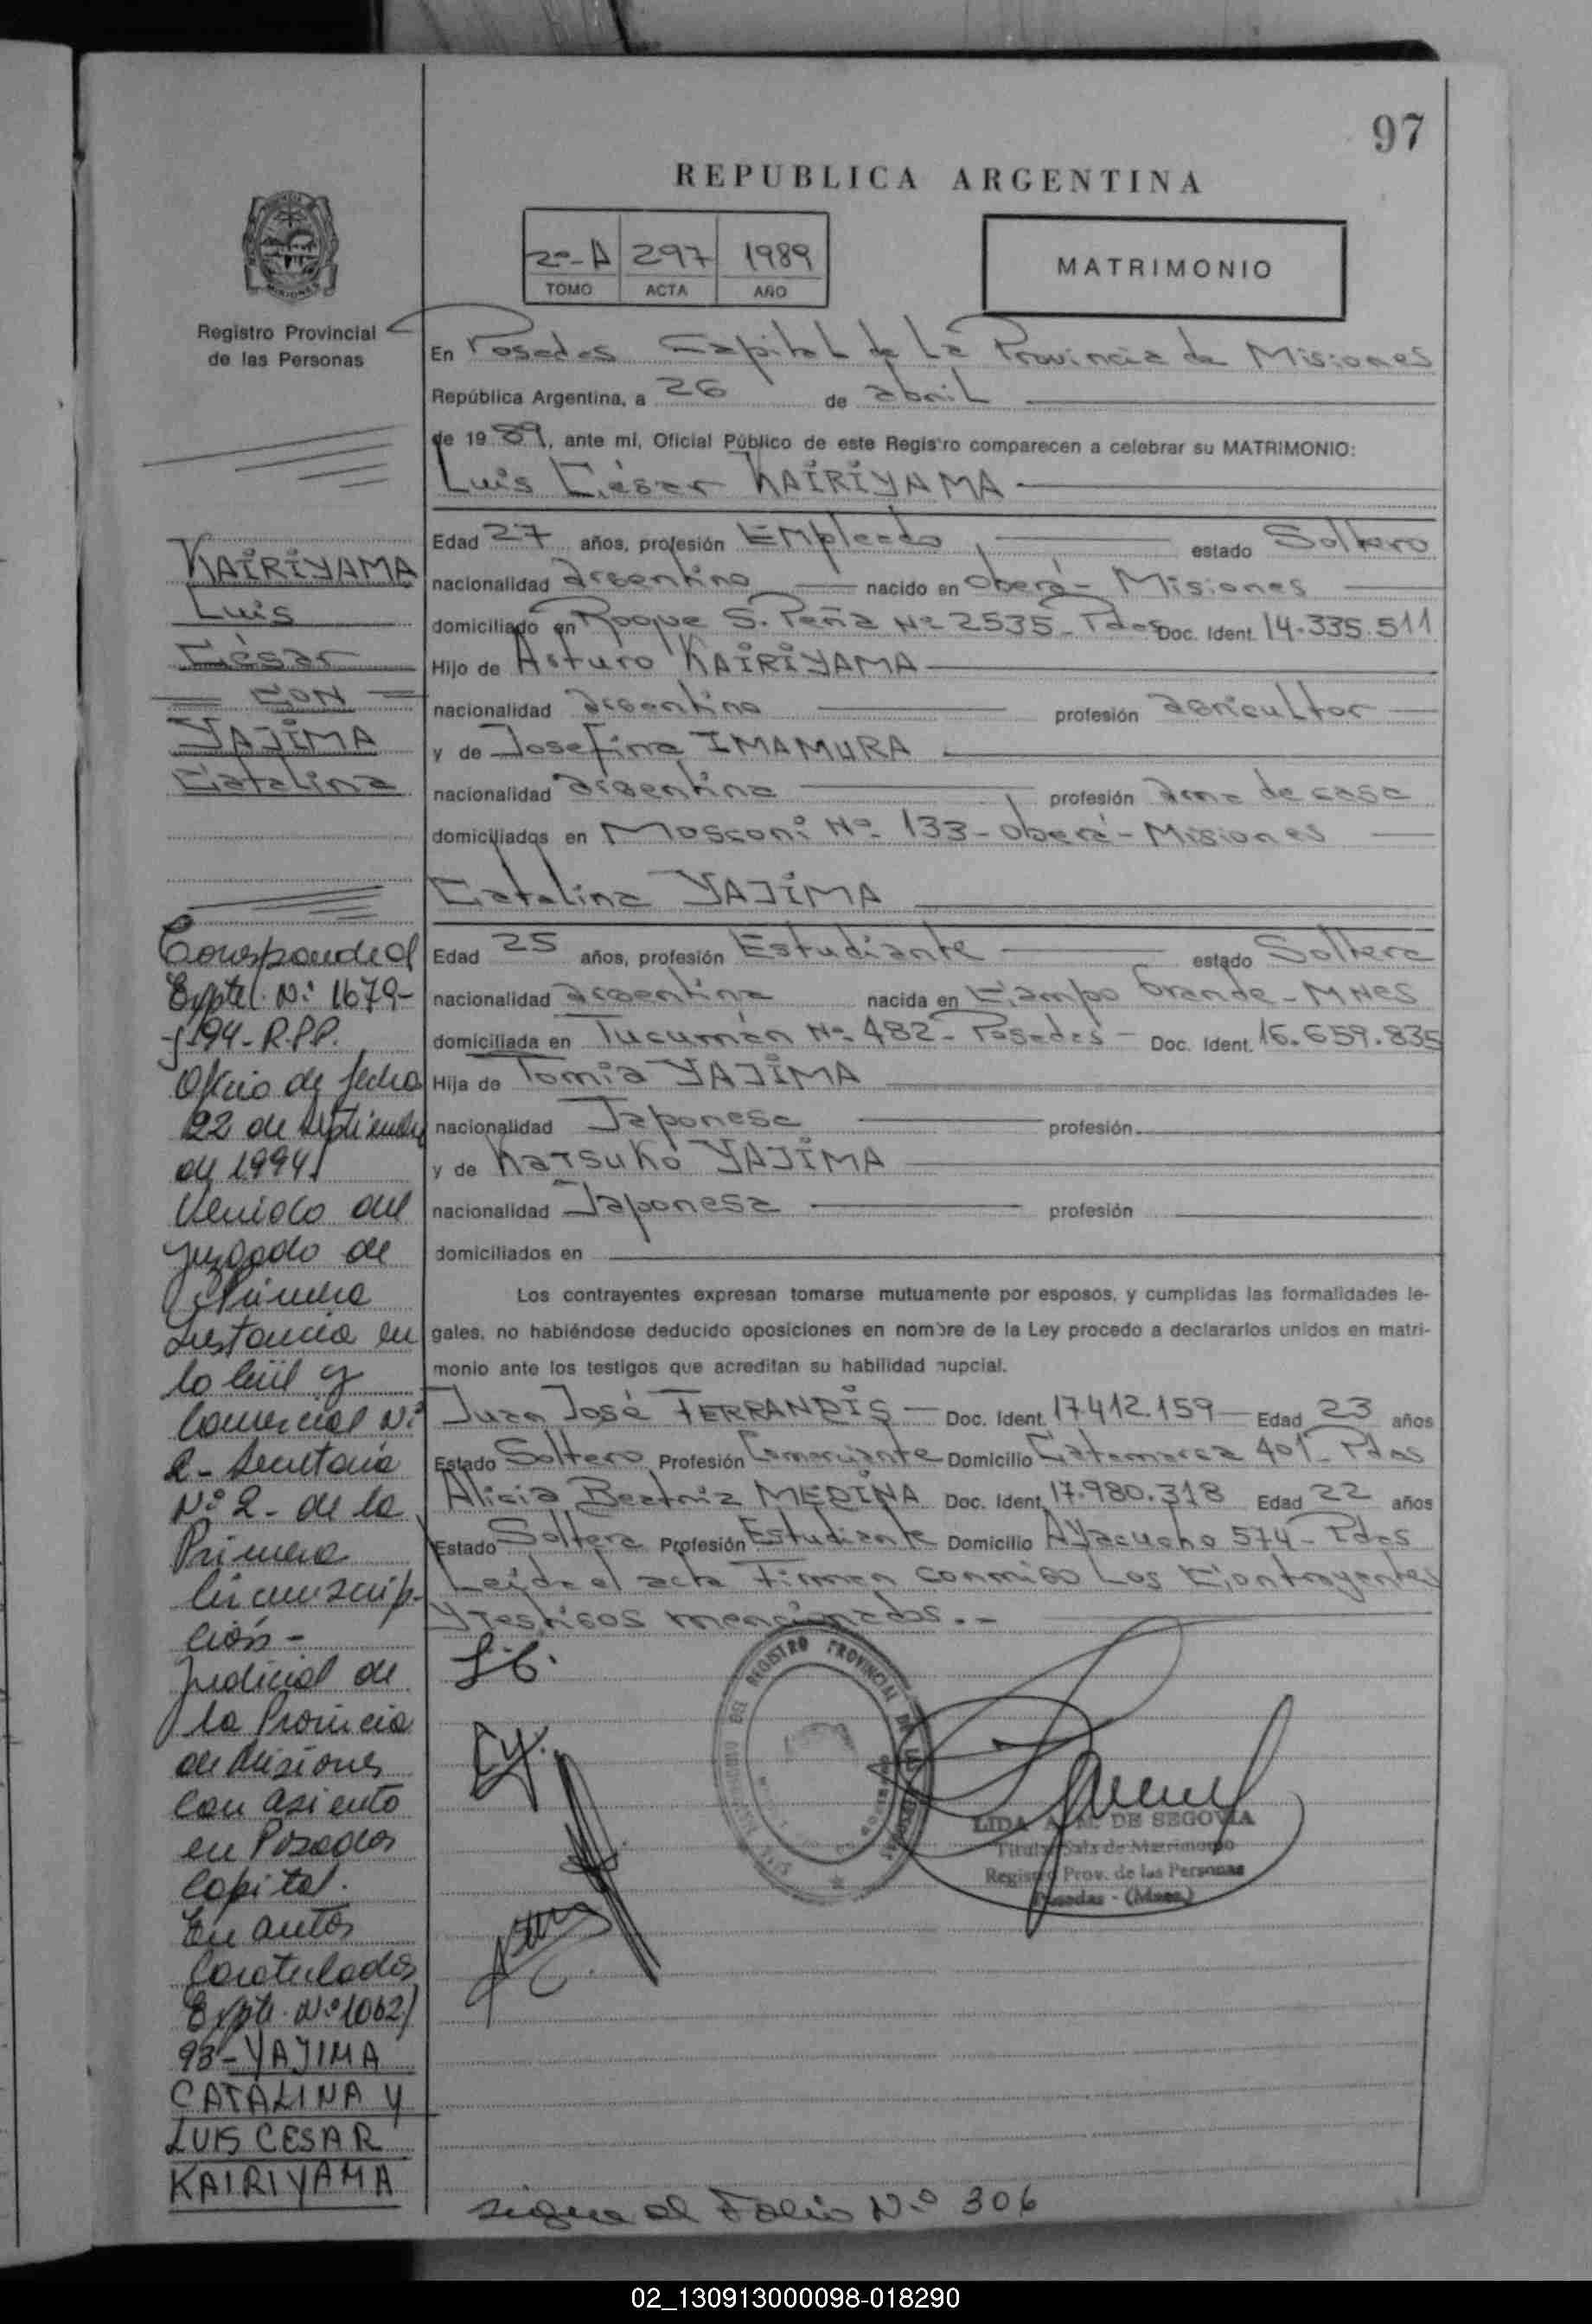 97
REPUBLICA ARGENTINA
2º-A 297 1989
TOMO ACTA AÑO
MATRIMONIO
Registro Provincial
de las Personas
En Posadas Capital de La Provincia de Misiones
República Argentina, a 26 de abril
de 1989, ante mí, Oficial Público de este Registro comparecen a celebrar su MATRIMONIO:
Luis César KAIRIYAMA
Edad 27 años, profesión Empleado estado Soltero
nacionalidad argentina nacido en Oberá - Misiones
domiciliado en Roque S. Peña Nº 2535 - Pdas Doc. Ident. 14.335.511
Hijo de Arturo KAIRIYAMA
nacionalidad argentina profesión agricultor
y de Josefina IMAMURA
nacionalidad argentina profesión ama de casa
domiciliados en Mosconi Nº 133 - Oberá - Misiones
Catalina YAJIMA
Edad 25 años, profesión Estudiante estado Soltera
nacionalidad argentina nacida en Campo Grande - Mnes
domiciliada en Tucumán Nº 482 - Posadas - Doc. Ident. 16.659.835
Hija de Tomia YAJIMA
nacionalidad Japonesa profesión
y de Katsuko YAJIMA
nacionalidad Japonesa profesión
domiciliados en
Los contrayentes expresan tomarse mutuamente por esposos, y cumplidas las formalidades le-
gales, no habiéndose deducido oposiciones en nombre de la Ley procedo a declararlos unidos en matri-
monio ante los testigos que acreditan su habilidad nupcial.
Juan José FERRANDIS - Doc. Ident. 17.412.159 - Edad 23 años
Estado Soltero Profesión Comerciante Domicilio Catamarca 401 - Pdas
Alicia Beatriz MEDINA Doc. Ident. 17.980.318 Edad 22 años
Estado Soltera Profesión Estudiante Domicilio Ayacucho 574 - Pdas
Leída el acta Firman conmigo Los Contrayentes
y testigos mencionados.-
REGISTRO PROVINCIAL DE LAS PERSONAS
LIDA A. M. DE SEGOVIA
Titular Sala de Matrimonio
Registro Prov. de las Personas
Posadas - (Mnes.)
sigue al Folio Nº 306
KAIRIYAMA
Luis
César
CON
YAJIMA
Catalina
Corresponde al
Expte. Nº 1679-
-94- R.P.P.
Oficio de fecha
22 de septiembre
de 1994
venido del
juzgado de
Primera
Instancia en
lo Civil y
Comercial Nº
2 - Secretaría
Nº 2 - de la
Primera
Circunscrip-
ción -
Judicial de
la Provincia
de Misiones
con asiento
en Posadas
Capital.
En autos
Caratulados
Expte. Nº 1062/
93 - YAJIMA
CATALINA Y
LUIS CESAR
KAIRIYAMA
02_130913000098-018290